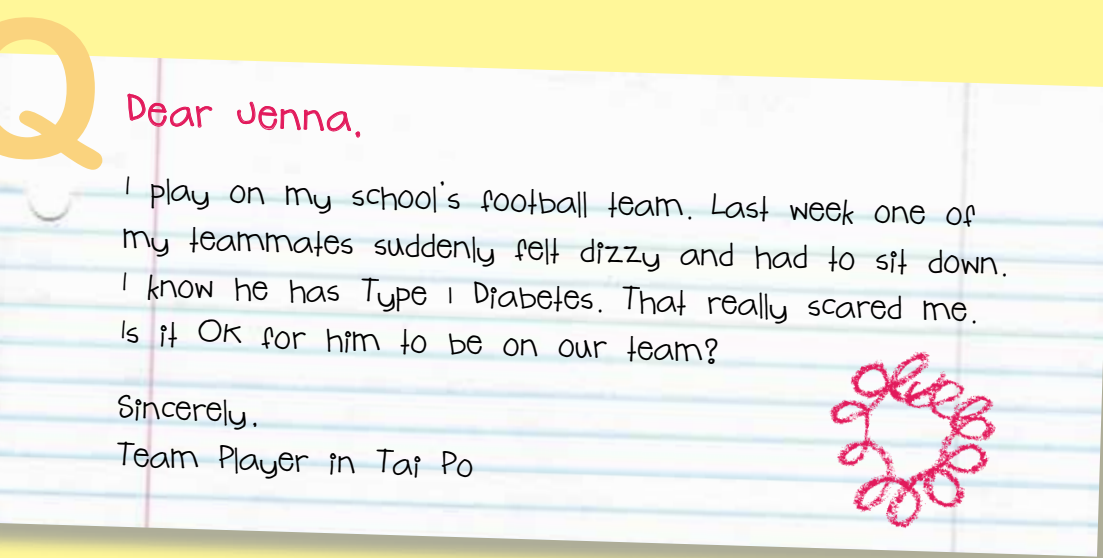 Q
Dear Jenna,
I play on my school's football team. Last week one of
my teammates suddenly felt dizzy and had to sit down.
I know he has Type 1 Diabetes. That really scared me.
Is it OK for him to be on our team?
Sincerely,
Team Player in Tai Po